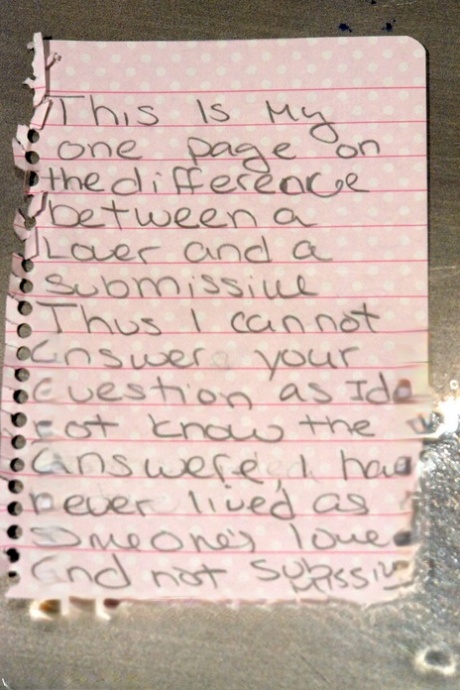 This Is My
one page on
the difference
between a
Lover and a
submissive
Thus I cannot
answer your
question as I do
not know the
answere, I had
never lived as
someone's love
and not submissiv